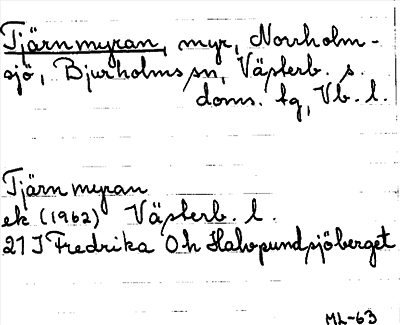 Tjärnmyran, myr, Norrholm-
sjö, Bjurholms sn, Västerb. s.
doms. tg, Vb. l.
Tjärnmyran
ek (1962) Västerb. l.
21 J Fredrika O h Halvpundsjöberget
ML-63